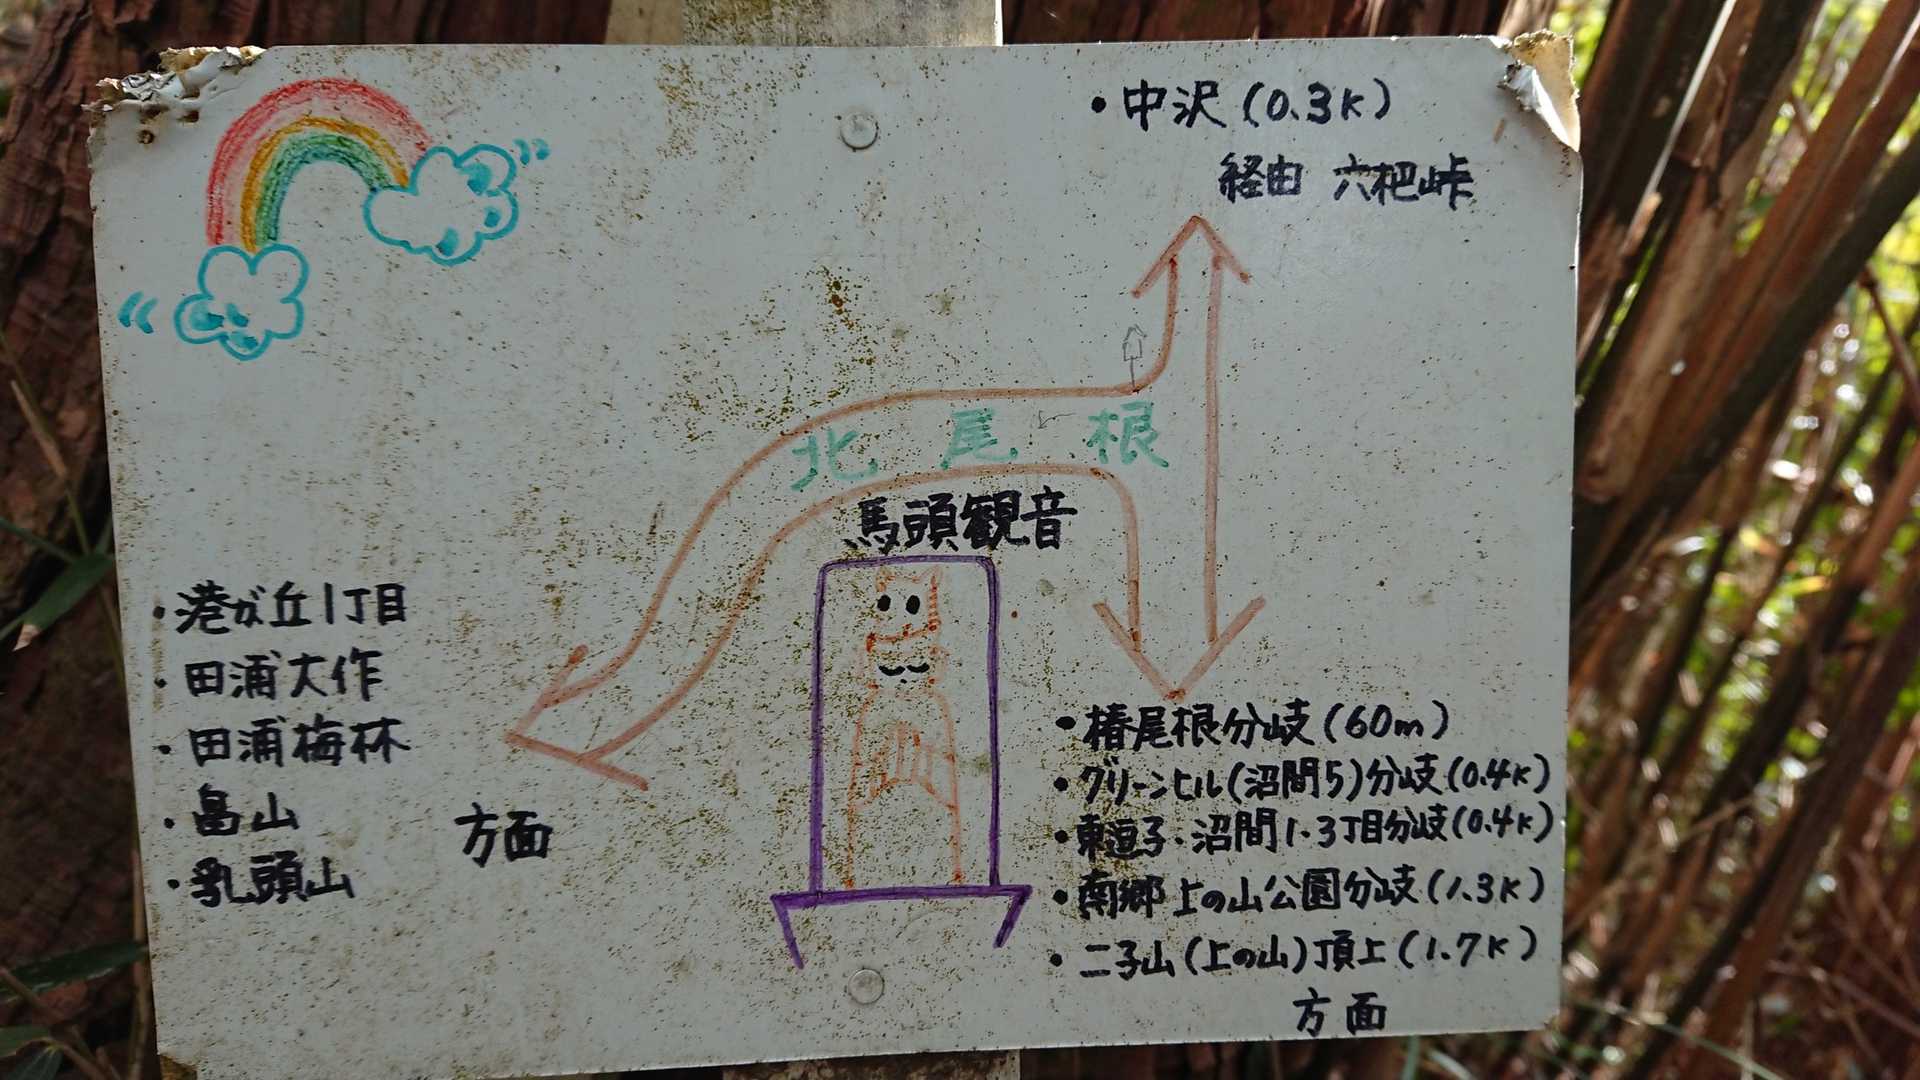 ・中沢(0.3K)
経由 六杷峠
北尾根
馬頭観音
・港が丘1丁目
・田浦大作
・田浦梅林
・畠山
・乳頭山
方面
・椿尾根分岐(60m)
・グリーンヒル(沼間5)分岐(0.4K)
・東逗子・沼間1・3丁目分岐(0.4K)
・南郷上の山公園分岐(1.3K)
・二子山(上の山)頂上(1.7K)
方面